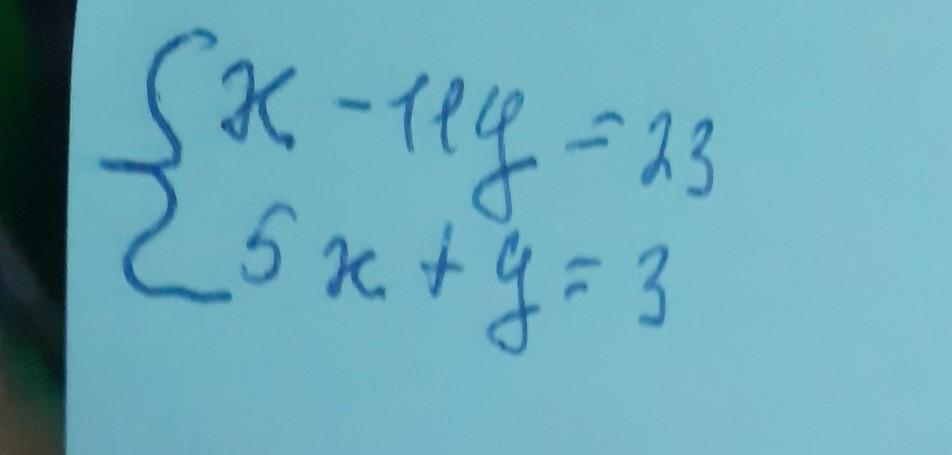 x - 11y = 23
5x + y = 3